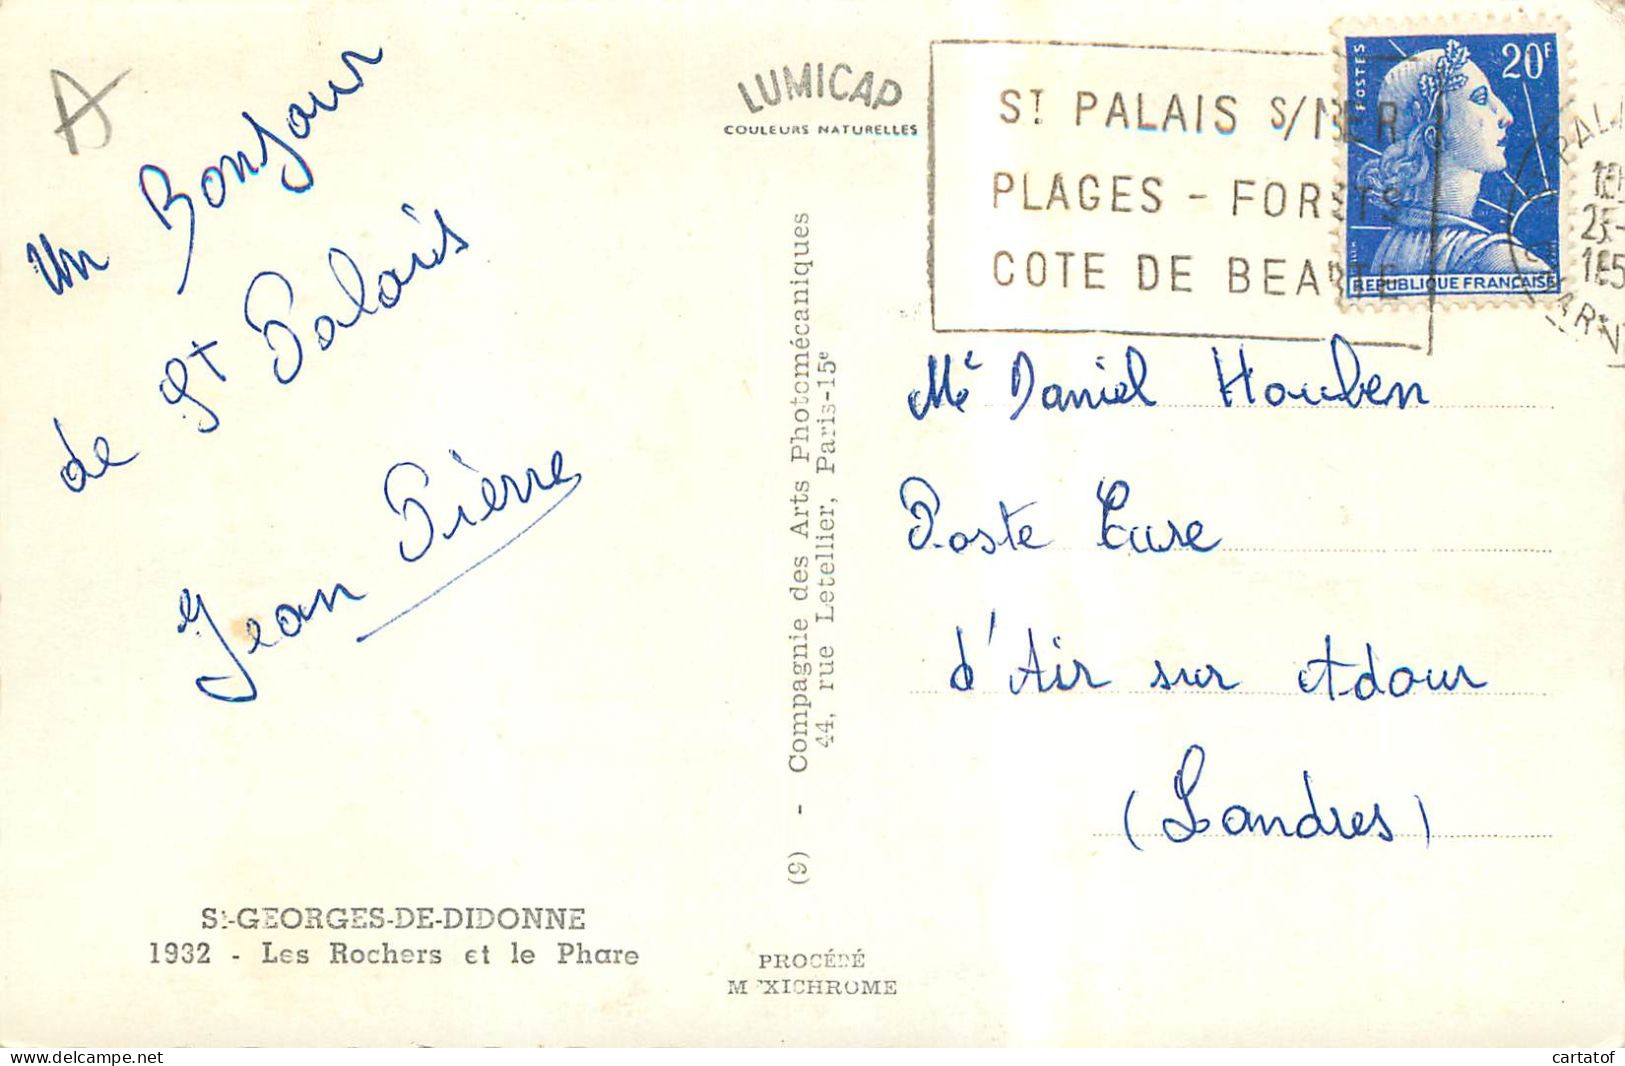 Un Bonjour
de St Palais
Jean Pièrre
St-GEORGES-DE-DIDONNE
1932 - Les Rochers et le Phare
LUMICAP
COULEURS NATURELLES
(9) - Compagnie des Arts Photomécaniques
44, rue Letellier, Paris-15e
PROCÉDÉ
MEXICHROME
ST PALAIS S/MER
PLAGES - FORETS
COTE DE BEAUTE
POSTES
20F
REPUBLIQUE FRANÇAISE
Daniel Houben
Poste Cure
d'Air sur Adour
(Landres)
cartatof
delcampe.net